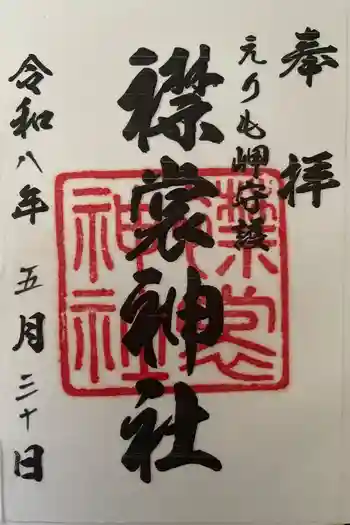 奉拝
えりも岬守護
襟裳神社
令和八年 五月三十日